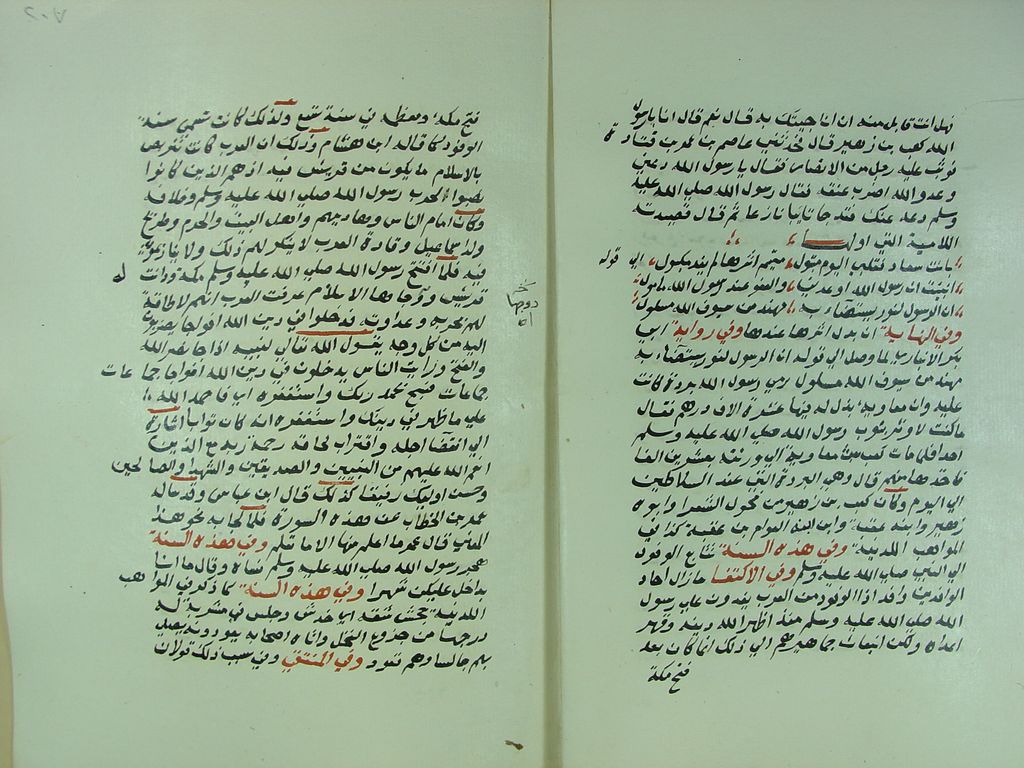 فهل انت قابل منه ان انا جيتك به قال نعم قال انا يا رسول
الله كعب بن زهير قال فحدثني عاصم بن عمر بن قتادة
فوثب عليه رجل من الانصار فقال يا رسول الله دعني
وعدو الله اضرب عنقه فقال رسول الله صلي الله عليه
وسلم دعه عنك فقد جا تايبا نازعا ثم قال قصيدته
اللامية التي اولها
بانت سعاد فقلبي اليوم متبول متيم اثرها لم يفد مكبول الي قوله
انبيت ان رسول الله اوعدني والعفو عند رسول الله مامول
ان الرسول لنور يستضا به مهند من سيوف الله مسلول
وفي رواية ابي
بكر الانباري لما وصل الي قوله ان الرسول لنور يستضا به
مهند من سيوف الله مسلول رمي رسول الله بردة كانت
عليه وان معاوية بذل له فيها عشرة الاف درهم فقال
ما كنت لاوثر بثوب رسول الله صلي الله عليه وسلم
احدا فلما مات كعب بعث معاوية الي ورثته بعشرين الفا
فاخذها منهم قال وهي البردة التي عند السلاطين
الي اليوم وكان كعب بن زهير من فحول الشعرا وابوه
زهير وابنه عقبة وابن ابنه العوام بن عقبة كذا في
المواهب اللدنية وفي هذه السنة تتابع الوفود
الي النبي صلي الله عليه وسلم وفي الاكتفا ما زال احاد
الوافدين وافذاذ الوفود من العرب يفدون علي رسول
الله صلي الله عليه وسلم منذ اظهر الله دينه وقهر
اعداه ولكن انبعاث جماهيرهم الي ذلك انما كان بعد
فتح مكة
فتح مكة ومعظمه في سنة تسع ولذلك كانت تسمي سنة
الوفود كما قاله ابن هشام وذلك ان العرب كانت تتربص
بالاسلام ما يكون من قريش فيه اذ هم الذين كانوا
نصبوا الحرب رسول الله صلي الله عليه وسلم وخلافه
وكانوا امام الناس وهاديهم واهل البيت والحرم وصريح
ولد اسماعيل وقادة العرب لا ينكر لهم ذلك ولا ينازعون
فيه فلما افتتح رسول الله صلي الله عليه وسلم مكة ودانت له
قريش ودوخها الاسلام عرفت العرب انهم لا طاقة
لهم بحربه وعداوته فدخلوا في دين الله افواجا يضربون
اليه من كل وجه يقول الله تعالي لنبيه اذا جا نصر الله
والفتح ورايت الناس يدخلون في دين الله افواجا جماعات
جماعات فسبح بحمد ربك واستغفره اي فاحمد الله
علي ما ظهر في دينك واستغفره انه كان توابا اشارة
الي انقضا اجله واقتراب لحاقه رحمة ربه مع الذين
انعم الله عليهم من النبيين والصديقين والشهدا والصالحين
وحسن اوليك رفيقا كذلك قال ابن عباس وقد ساله
عمر بن الخطاب عن هذه السورة فلما اجابه بنحو هذا
المعني قال عمر ما اعلم منها الا ما تعلم وفي هذه السنة
هجر رسول الله صلي الله عليه وسلم نساه وقال ما انا
بداخل عليكن شهرا وفي هذه السنة كما ذكر في المواهب
اللدنية جحش شقه اي خدش وجلس في مشربة له
درجها من جذوع النخل واتاه اصحابه يعودونه يصلي
بهم جالسا وهم قعود وفي المنتقي وفي سبب ذلك قولان
دوخها